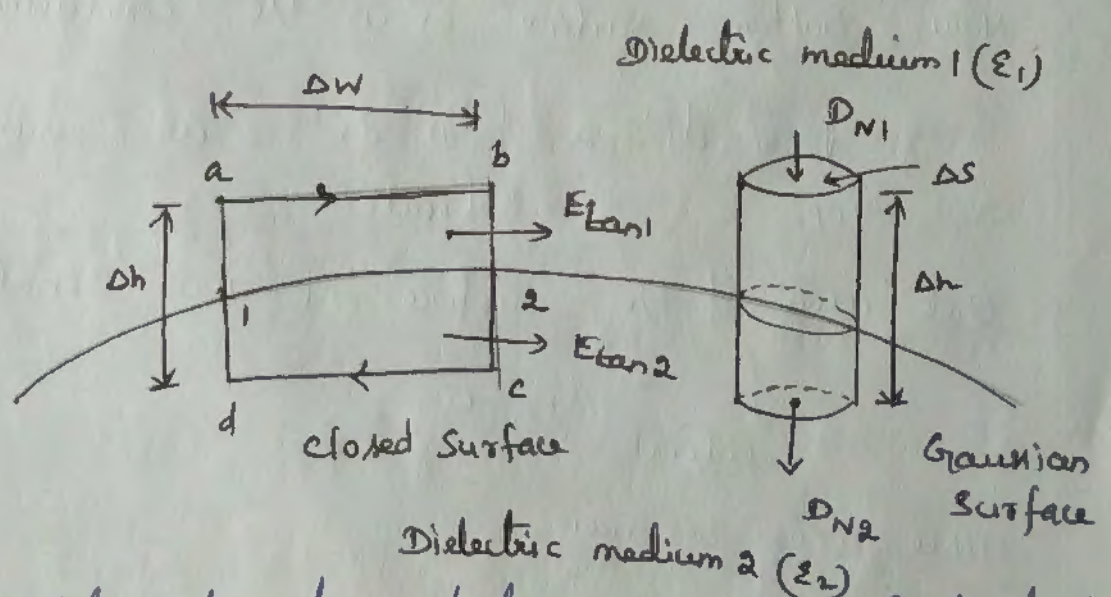 Dielectric medium 1 (ε₁)
ΔW
D_N1
a
b
ΔS
E_tan1
Δh
Δh
1
2
E_tan2
d
c
Closed Surface
Gaussian
Surface
D_N2
Dielectric medium 2 (ε₂)